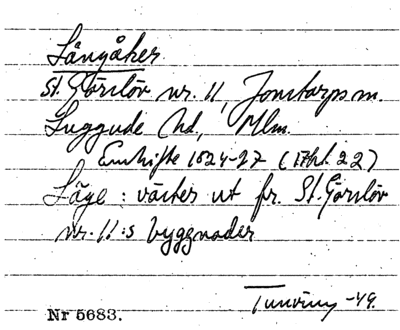 Långåker
St. Görslöv nr. 11, Jonstorps sn.
Luggude hd, Mlm.
Enskifte 1824-27 (
Läge: väster ut fr. St. Görslöv
nr. 11:s byggnader
-49.
Nr 5683.